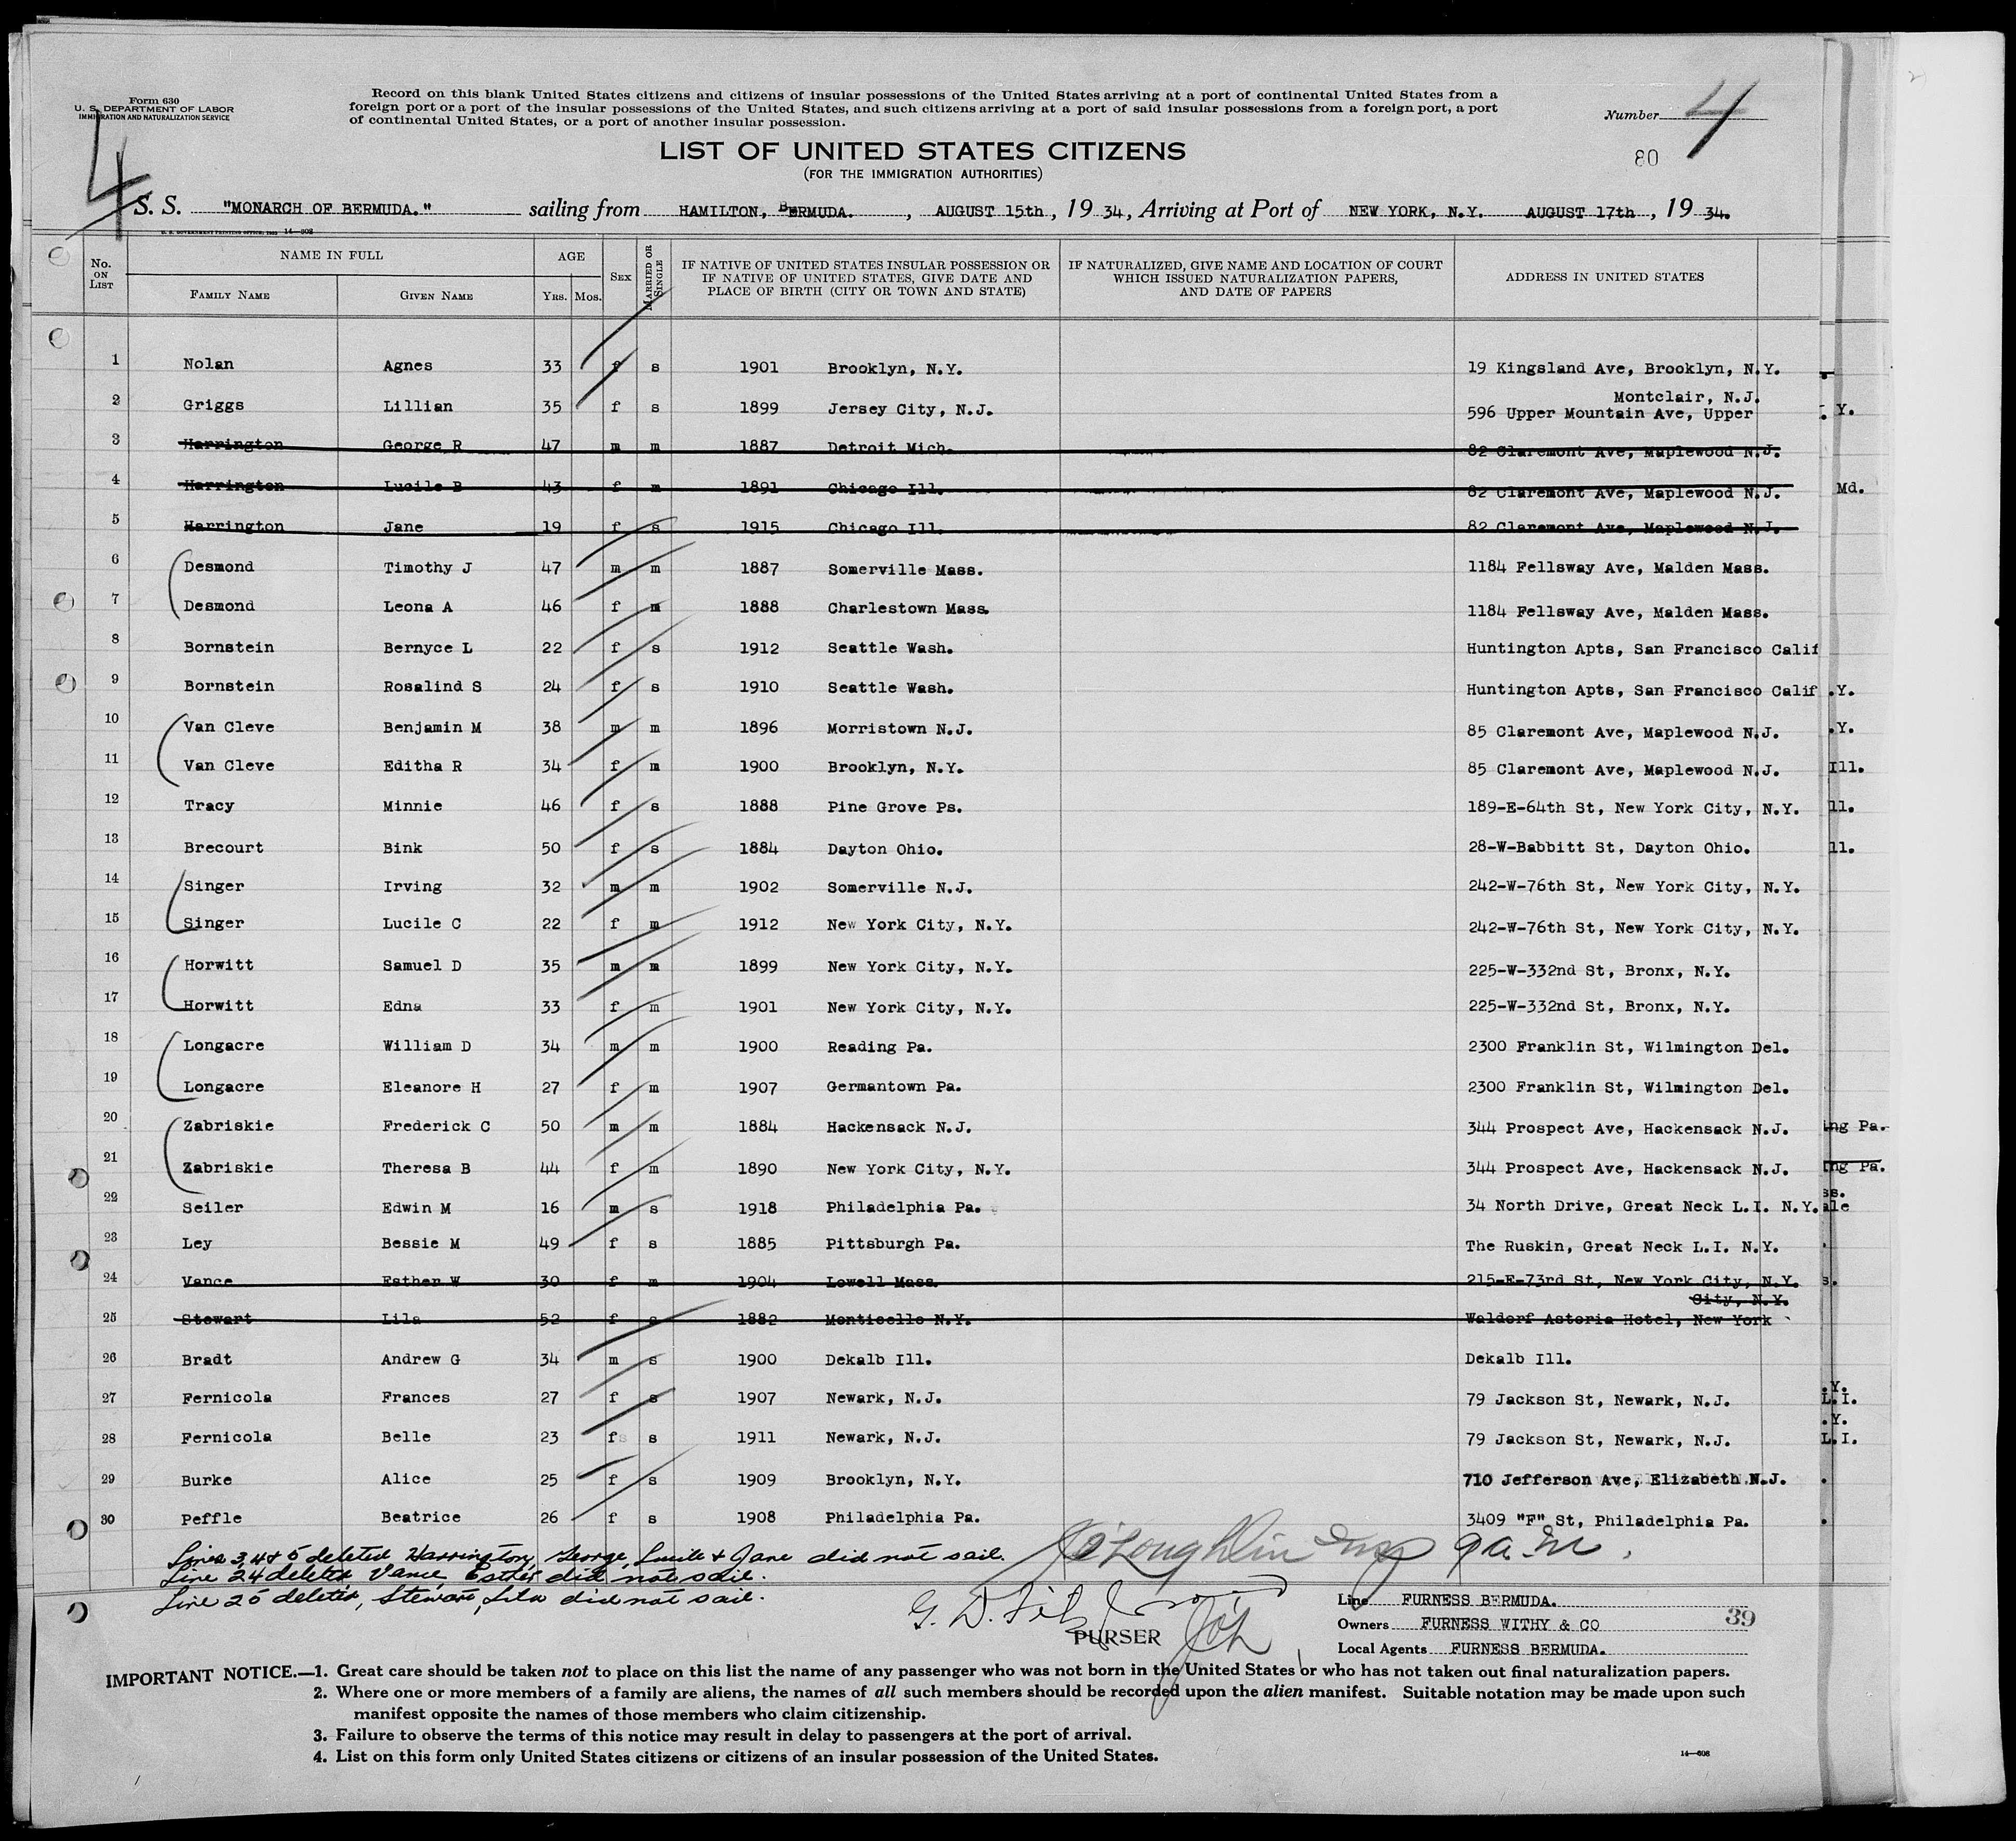 Form 630
U. S. DEPARTMENT OF LABOR
IMMIGRATION AND NATURALIZATION SERVICE
Record on this blank United States citizens and citizens of insular possessions of the United States arriving at a port of continental United States from a
foreign port or a port of the insular possessions of the United States, and such citizens arriving at a port of said insular possessions from a foreign port, a port
of continental United States, or a port of another insular possession.
Number 4
4
80
LIST OF UNITED STATES CITIZENS
(FOR THE IMMIGRATION AUTHORITIES)
S. S. "MONARCH OF BERMUDA." sailing from HAMILTON, BERMUDA. , AUGUST 15th , 19 34, Arriving at Port of NEW YORK, N.Y. AUGUST 17th , 19 34.
14—808
No. ON LIST NAME IN FULL AGE SEX MARRIED OR SINGLE IF NATIVE OF UNITED STATES INSULAR POSSESSION OR IF NATIVE OF UNITED STATES, GIVE DATE AND PLACE OF BIRTH (CITY OR TOWN AND STATE) IF NATURALIZED, GIVE NAME AND LOCATION OF COURT WHICH ISSUED NATURALIZATION PAPERS, AND DATE OF PAPERS ADDRESS IN UNITED STATES
FAMILY NAME GIVEN NAME YRS. MOS.
1 Nolan Agnes 33 f s 1901 Brooklyn, N.Y. 19 Kingsland Ave, Brooklyn, N.Y.
Montclair, N.J.
2 Griggs Lillian 35 f s 1899 Jersey City, N.J. 596 Upper Mountain Ave, Upper Y.
3 Harrington George R 47 m m 1887 Detroit Mich. 82 Claremont Ave, Maplewood N.J.
4 Harrington Lucile B 43 f m 1891 Chicago Ill. 82 Claremont Ave, Maplewood N.J. Md.
5 Harrington Jane 19 f s 1915 Chicago Ill. 82 Claremont Ave, Maplewood N.J.
6 Desmond Timothy J 47 m m 1887 Somerville Mass. 1184 Fellsway Ave, Malden Mass.
7 Desmond Leona A 46 f m 1888 Charlestown Mass. 1184 Fellsway Ave, Malden Mass.
8 Bornstein Bernyce L 22 f s 1912 Seattle Wash. Huntington Apts, San Francisco Calif
9 Bornstein Rosalind S 24 f s 1910 Seattle Wash. Huntington Apts, San Francisco Calif .Y.
10 Van Cleve Benjamin M 38 m m 1896 Morristown N.J. 85 Claremont Ave, Maplewood N.J. .Y.
11 Van Cleve Editha R 34 f m 1900 Brooklyn, N.Y. 85 Claremont Ave, Maplewood N.J. Ill.
12 Tracy Minnie 46 f s 1888 Pine Grove Ps. 189-E-64th St, New York City, N.Y. ll.
13 Brecourt Bink 50 f s 1884 Dayton Ohio. 28-W-Babbitt St, Dayton Ohio. ll.
14 Singer Irving 32 m m 1902 Somerville N.J. 242-W-76th St, New York City, N.Y.
15 Singer Lucile C 22 f m 1912 New York City, N.Y. 242-W-76th St, New York City, N.Y.
16 Horwitt Samuel D 35 m m 1899 New York City, N.Y. 225-W-332nd St, Bronx, N.Y.
17 Horwitt Edna 33 f m 1901 New York City, N.Y. 225-W-332nd St, Bronx, N.Y.
18 Longacre William D 34 m m 1900 Reading Pa. 2300 Franklin St, Wilmington Del.
19 Longacre Eleanore H 27 f m 1907 Germantown Pa. 2300 Franklin St, Wilmington Del.
20 Zabriskie Frederick C 50 m m 1884 Hackensack N.J. 344 Prospect Ave, Hackensack N.J. ing Pa.
21 Zabriskie Theresa B 44 f m 1890 New York City, N.Y. 344 Prospect Ave, Hackensack N.J. ing Pa.
ss.
22 Seiler Edwin M 16 m s 1918 Philadelphia Pa. 34 North Drive, Great Neck L.I. N.Y. ale
23 Ley Bessie M 49 f s 1885 Pittsburgh Pa. The Ruskin, Great Neck L.I. N.Y.
24 Vance Esther W 30 f m 1904 Lowell Mass. 215-E-73rd St, New York City, N.Y. s.
City, N.Y.
25 Stewart Lila 52 f s 1882 Monticello N.Y. Waldorf Astoria Hotel, New York
26 Bradt Andrew G 34 m s 1900 Dekalb Ill. Dekalb Ill.
.Y.
27 Fernicola Frances 27 f s 1907 Newark, N.J. 79 Jackson St, Newark, N.J. L.I.
.Y.
28 Fernicola Belle 23 f s 1911 Newark, N.J. 79 Jackson St, Newark, N.J. L.I.
29 Burke Alice 25 f s 1909 Brooklyn, N.Y. 710 Jefferson Ave, Elizabeth N.J.
30 Peffle Beatrice 26 f s 1908 Philadelphia Pa. 3409 "F" St, Philadelphia Pa.
Lines 3,4 & 5 deleted Harrington, George, Lucile & Jane did not sail.
Line 24 deleted Vance, Esther did not sail.
Line 25 deleted, Stewart, Lila did not sail.
PURSER
Line FURNESS BERMUDA.
Owners FURNESS WITHY & CO 39
Local Agents FURNESS BERMUDA.
IMPORTANT NOTICE.—1. Great care should be taken not to place on this list the name of any passenger who was not born in the United States or who has not taken out final naturalization papers.
2. Where one or more members of a family are aliens, the names of all such members should be recorded upon the alien manifest. Suitable notation may be made upon such
manifest opposite the names of those members who claim citizenship.
3. Failure to observe the terms of this notice may result in delay to passengers at the port of arrival.
4. List on this form only United States citizens or citizens of an insular possession of the United States.
14—808